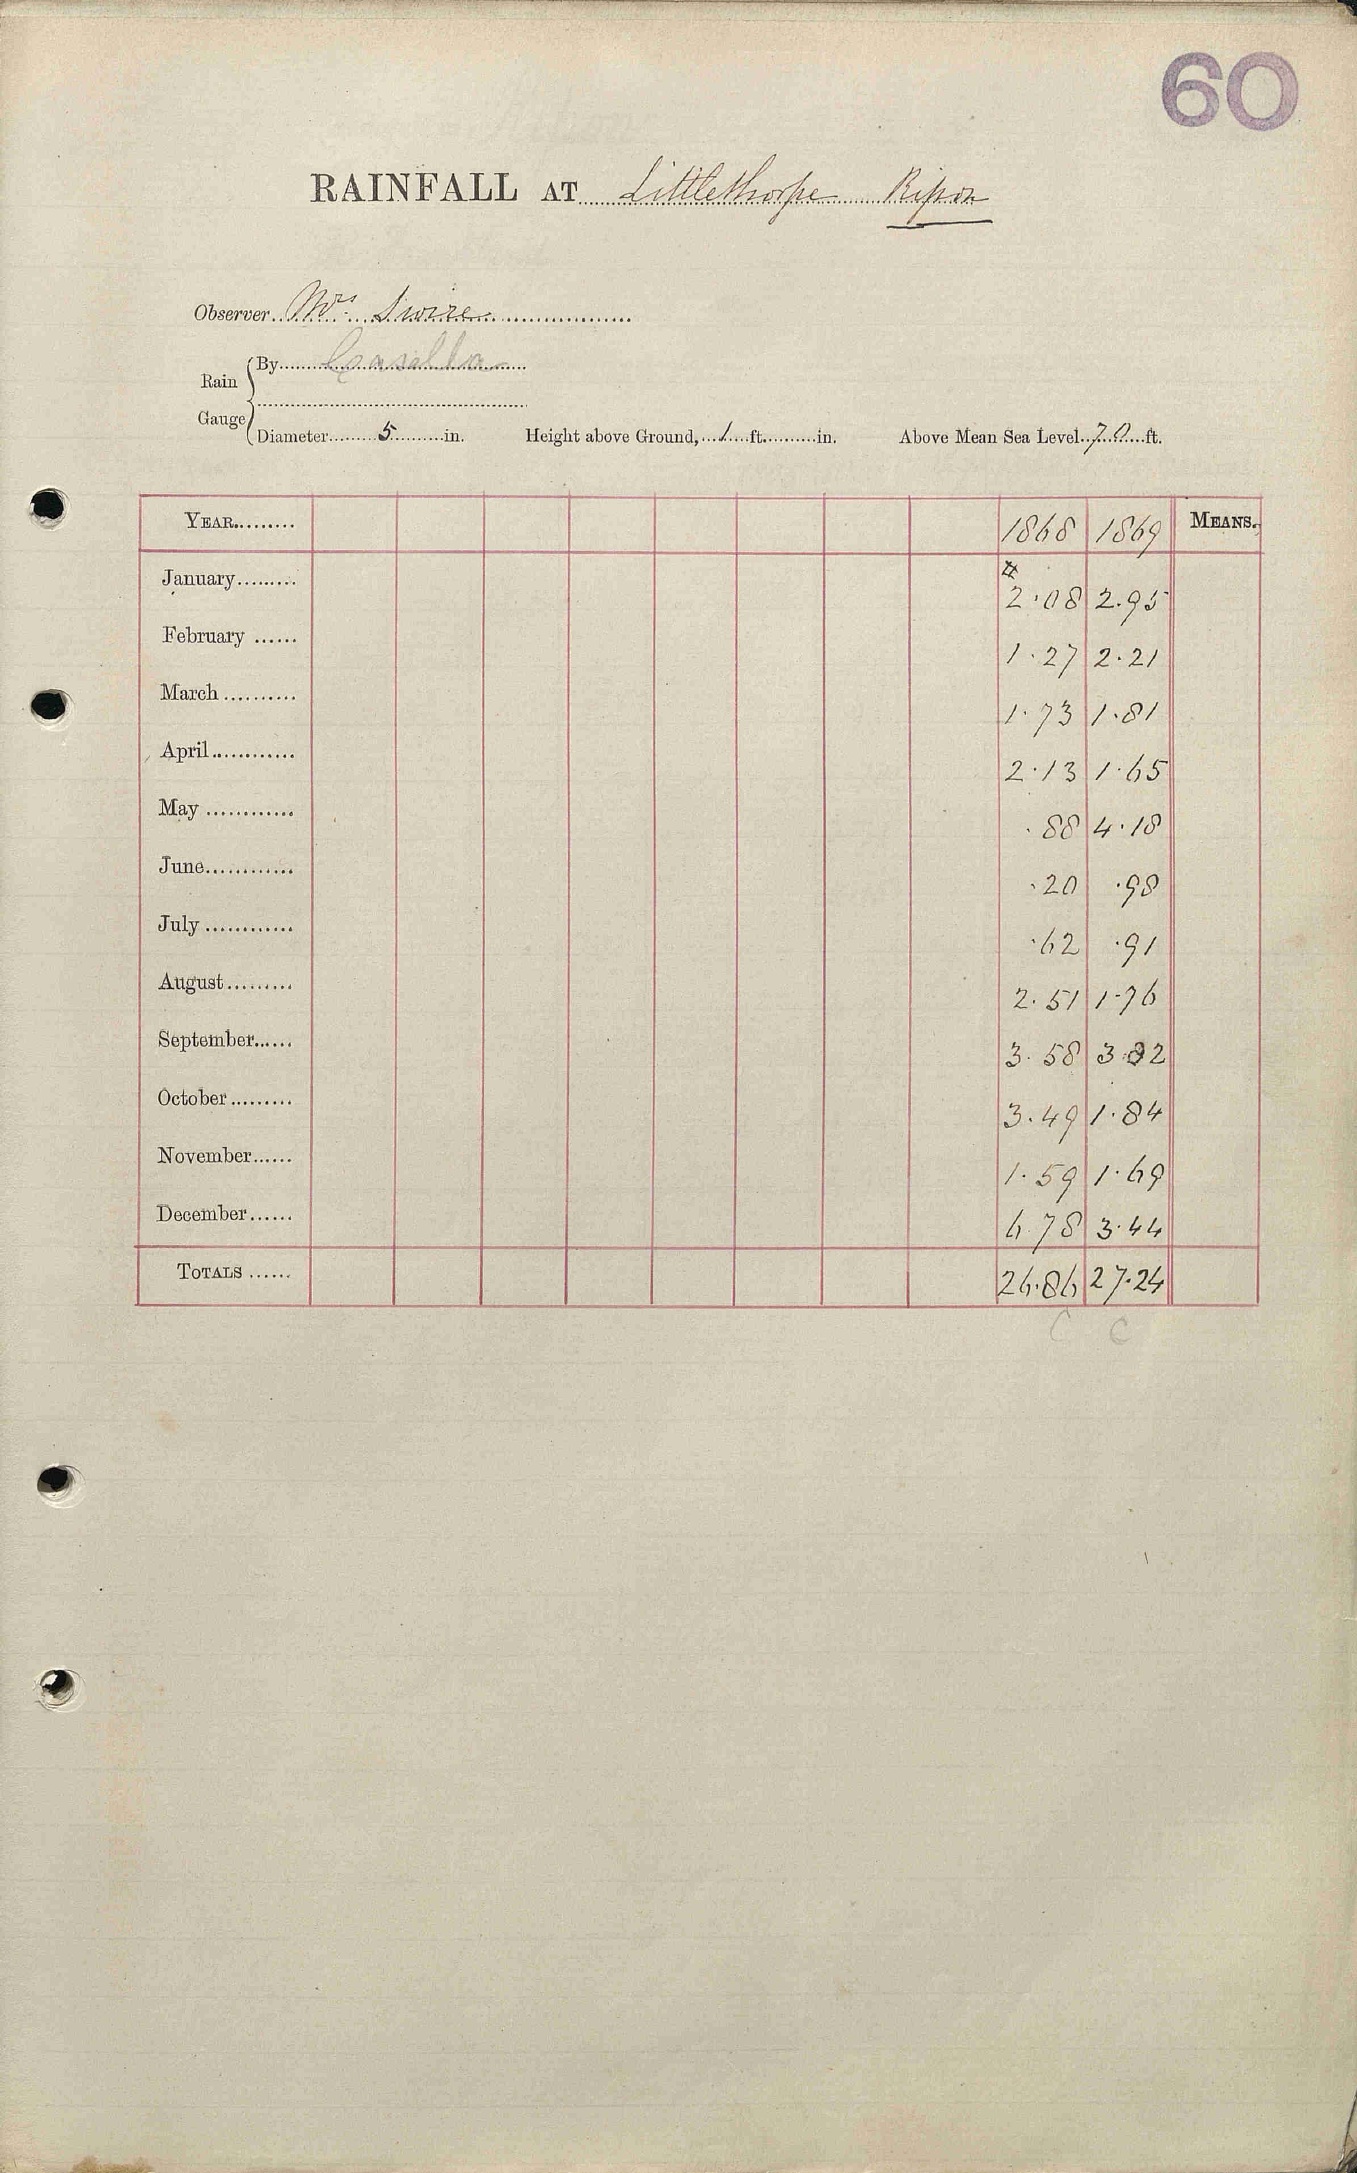 60
RAINFALL AT Littlethorpe Ripon
Observer Mrs. Swire
Rain Gauge By Casella
Diameter 5 in. Height above Ground, 1 ft. in. Above Mean Sea Level 70 ft.
YEAR 1868 1869 MEANS.
#
January 2.08 2.95
February 1.27 2.21
March 1.73 1.81
April 2.13 1.65
May .88 4.18
June .20 .98
July .62 .91
August 2.51 1.76
September 3.58 3.82
October 3.49 1.84
November 1.59 1.69
December 6.78 3.44
TOTALS 26.86 27.24
C C